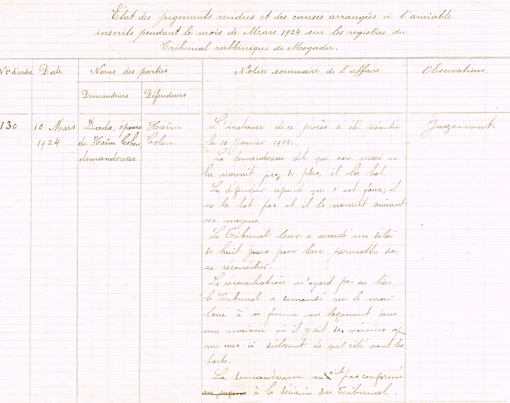 Etat des jugements rendus et des causes arrangées à l'amiable
inscrits pendant le mois de Mars 1924 sur les registres du
Tribunal rabbinique de Mogador.
N° d'ordre Date Noms des parties Notice sommaire de l'affaire Observations
Demandeurs Défendeurs
130 10 Mars Dada, épouse Haïm L'instance de ce procès a été
Jugement
1924 de Haïm Cohen, Cohen le 10 janvier 1924.
demanderesse La demanderesse dit que son mari ne
la nourrit pas, de plus, il la bat.
Le défendeur répond que c'est faux; il
ne la bat pas et il la nourrit suivant
ses moyens.
Le Tribunal leur a accordé un délai
de huit jours pour leur permettre de
se réconcilier.
La réconciliation n'ayant pas eu lieu,
le Tribunal a demandé que le mari
loue à sa femme un logement dans
une maison où il y ait des voisins
ceux-ci de quel côté sont les
torts.
La demanderesse ne s'est pas conformée
à la décision du Tribunal.